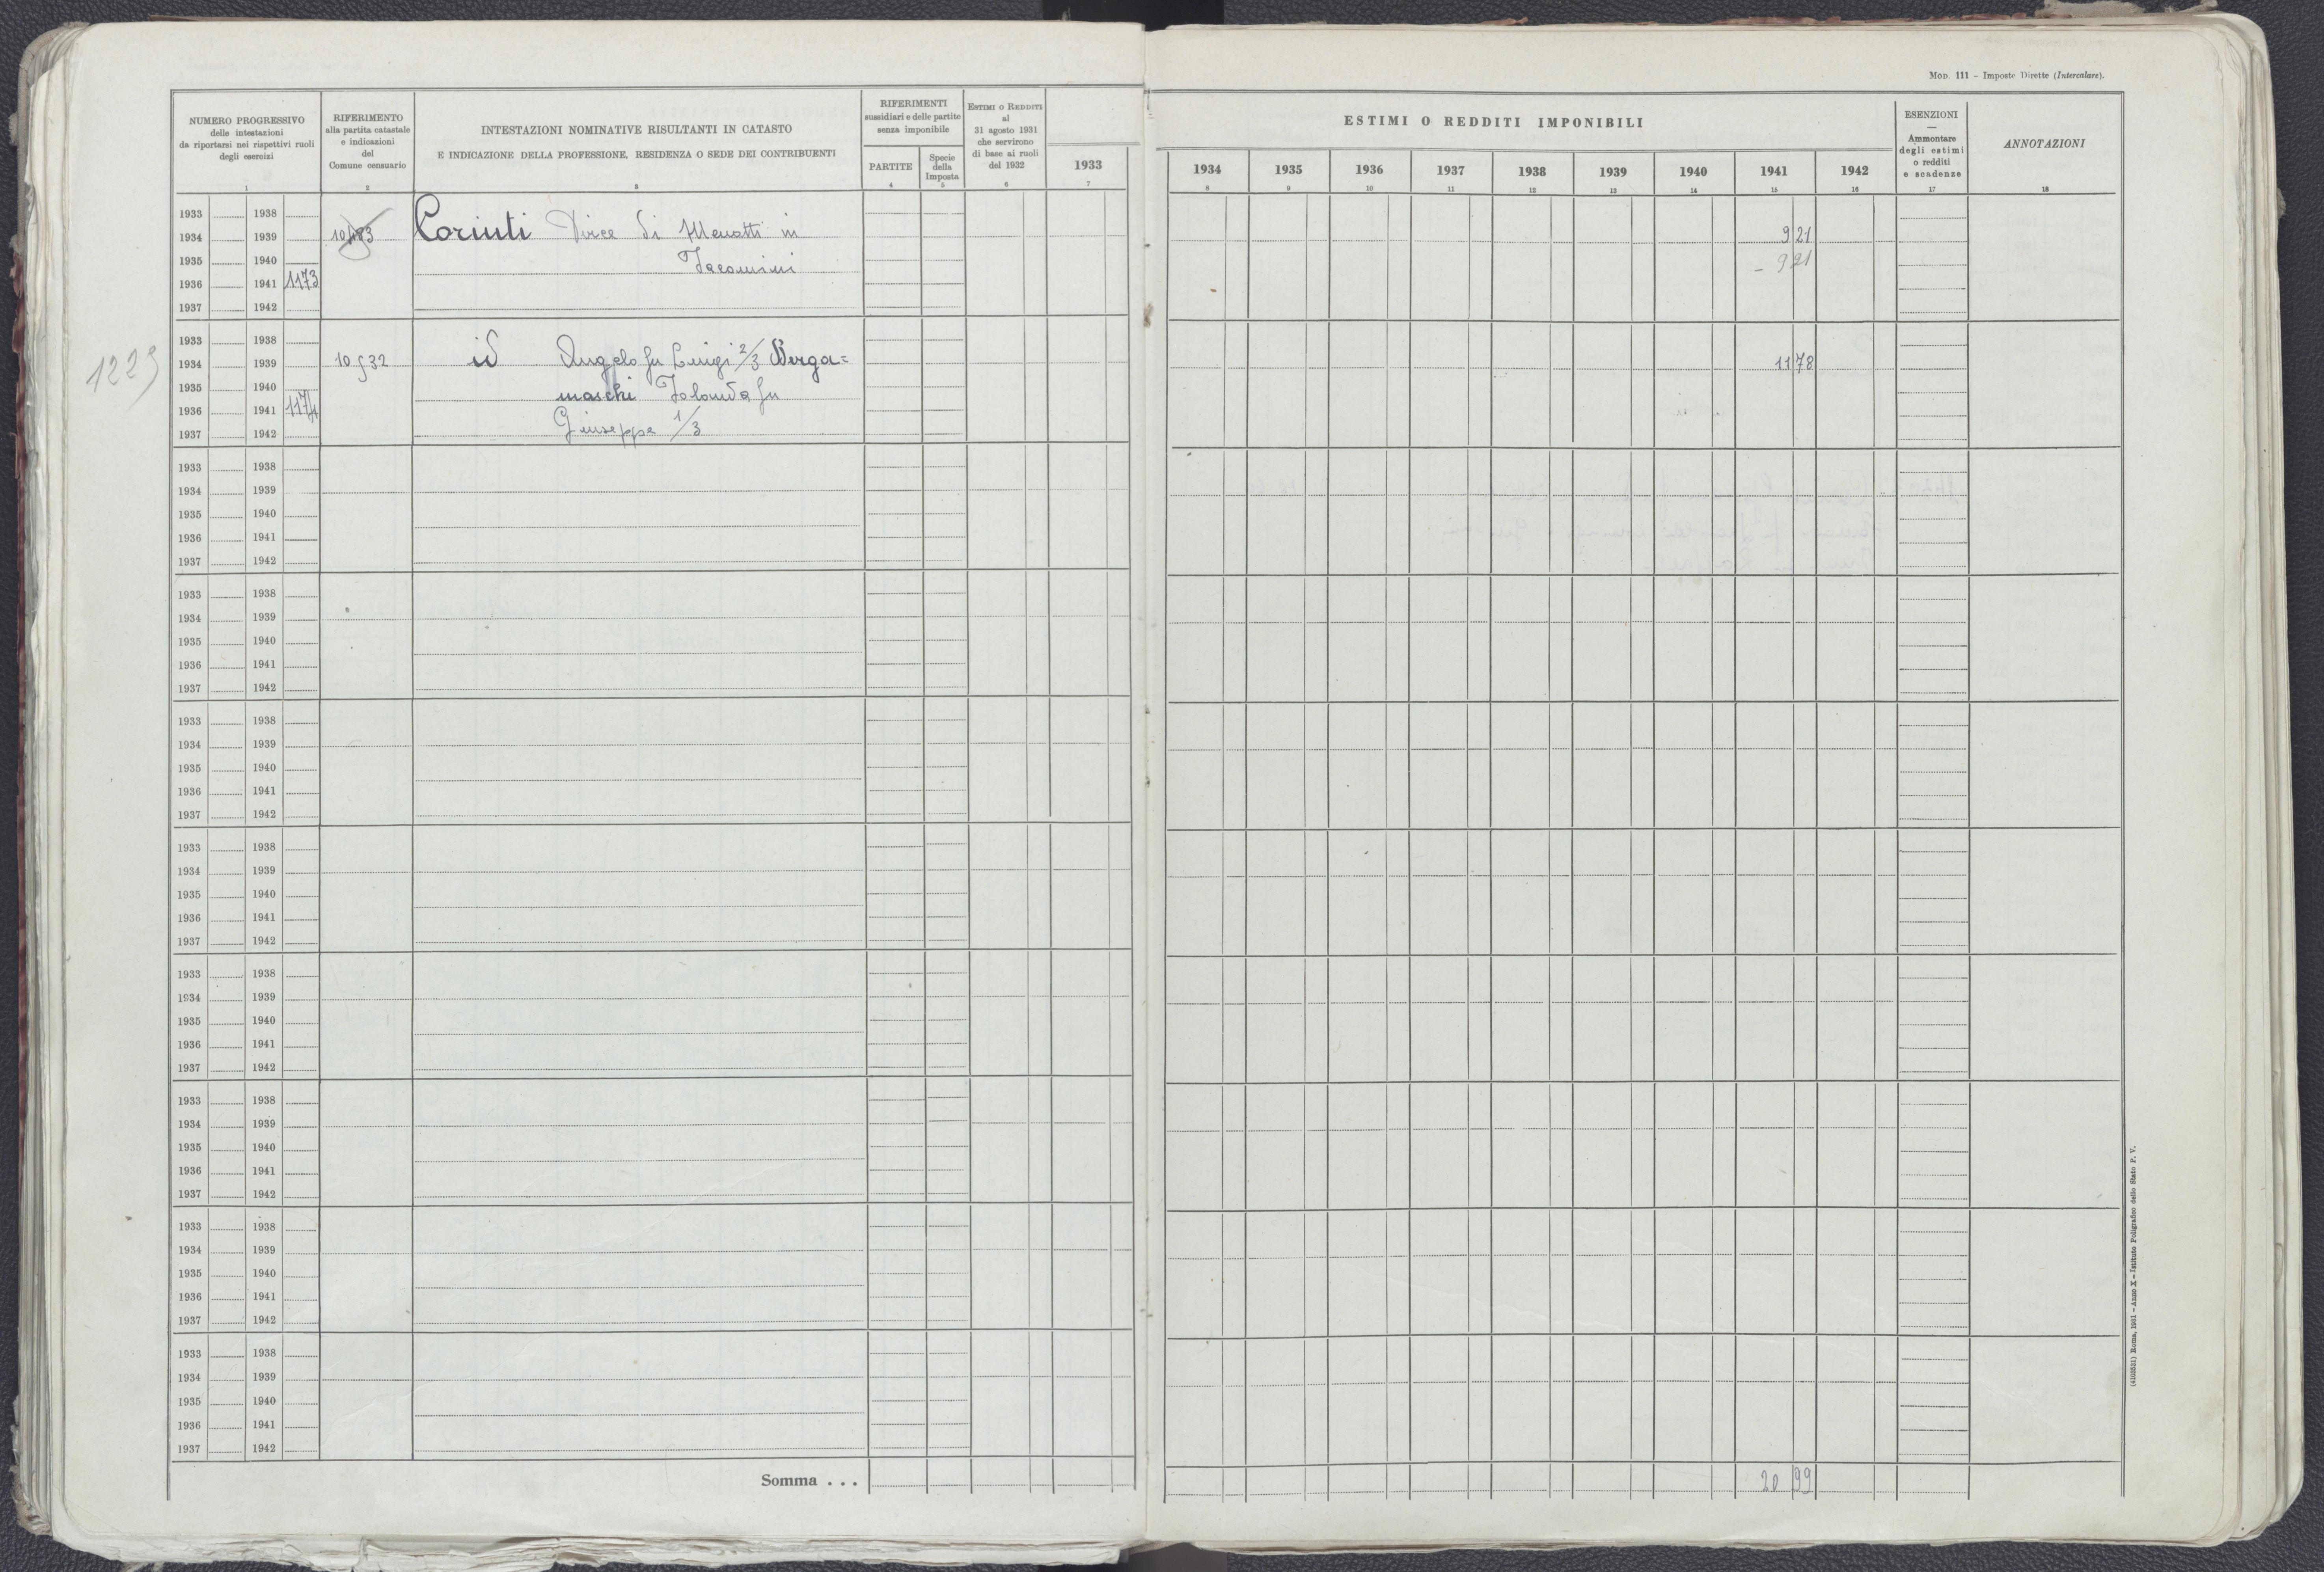 Mod. 111 - Imposte Dirette (Intercalare).
NUMERO PROGRESSIVO
delle intestazioni
da riportarsi nei rispettivi ruoli
degli esercizi
1
RIFERIMENTO
alla partita catastale
e indicazioni
del
Comune censuario
2
INTESTAZIONI NOMINATIVE RISULTANTI IN CATASTO
E INDICAZIONE DELLA PROFESSIONE, RESIDENZA O SEDE DEI CONTRIBUENTI
3
RIFERIMENTI
sussidiari e delle partite
senza imponibile
PARTITE
4
Specie
della
Imposta
5
ESTIMI O REDDITI
al
31 agosto 1931
che servirono
di base ai ruoli
del 1932
6
1933
7
ESTIMI O REDDITI IMPONIBILI
1934 1935 1936 1937 1938 1939 1940 1941 1942
8 9 10 11 12 13 14 15 16
ESENZIONI
—
Ammontare
degli estimi
o redditi
e scadenze
17
ANNOTAZIONI
18
1933 1938
1934 1939 Corinti Dirce di Menotti in 9 21
1935 1940 Iacomini - 9 21
1936 1941 1173
1937 1942
1933 1938
1229
1934 1939 10532 id Angelo fu Luigi 2/3 Berga= 11 78
1935 1940 maschi Iolanda fu
1936 1941 1174
1937 1942 Giuseppe 1/3
1933 1938
1934 1939
1935 1940
1936 1941
1937 1942
1933 1938
1934 1939
1935 1940
1936 1941
1937 1942
1933 1938
1934 1939
1935 1940
1936 1941
1937 1942
1933 1938
1934 1939
1935 1940
1936 1941
1937 1942
1933 1938
1934 1939
1935 1940
1936 1941
1937 1942
1933 1938
1934 1939
1935 1940
1936 1941
1937 1942
1933 1938
1934 1939
1935 1940
1936 1941
1937 1942
1933 1938
1934 1939
1935 1940
1936 1941
1937 1942
Somma . . . 20 99
(4103531) Roma, 1931 - Anno X - Istituto Poligrafico dello Stato P. V.